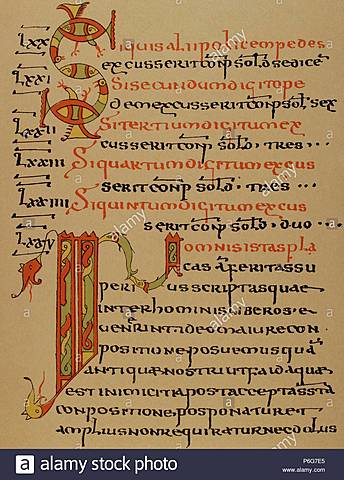 LXX Siquis alii pollicem pedes
excusserit conp sold sedice
LXXI Sisecundum digito pe
dem excusserit conp sol sex
LXXII Sitertium digitum ex
cusserit conp sold tres ···
LXXIII Siquartum digitum excus
serit conp sold tres ···
LXXIIII Siquintum digitum excus
serit conp sold duo ···
LXXV In omnis istas pla
cas feritas su
perius scriptas quae
inter hominis liberos e
venerint ideo maiure con
positione posuemus quā
antiquae nostri ut faida quae
est inimicitia post accepta ssta
conpositione, posponatur et
amplius non requiratur nec dolus
alamy stock photo
P6G7E5
www.alamy.com